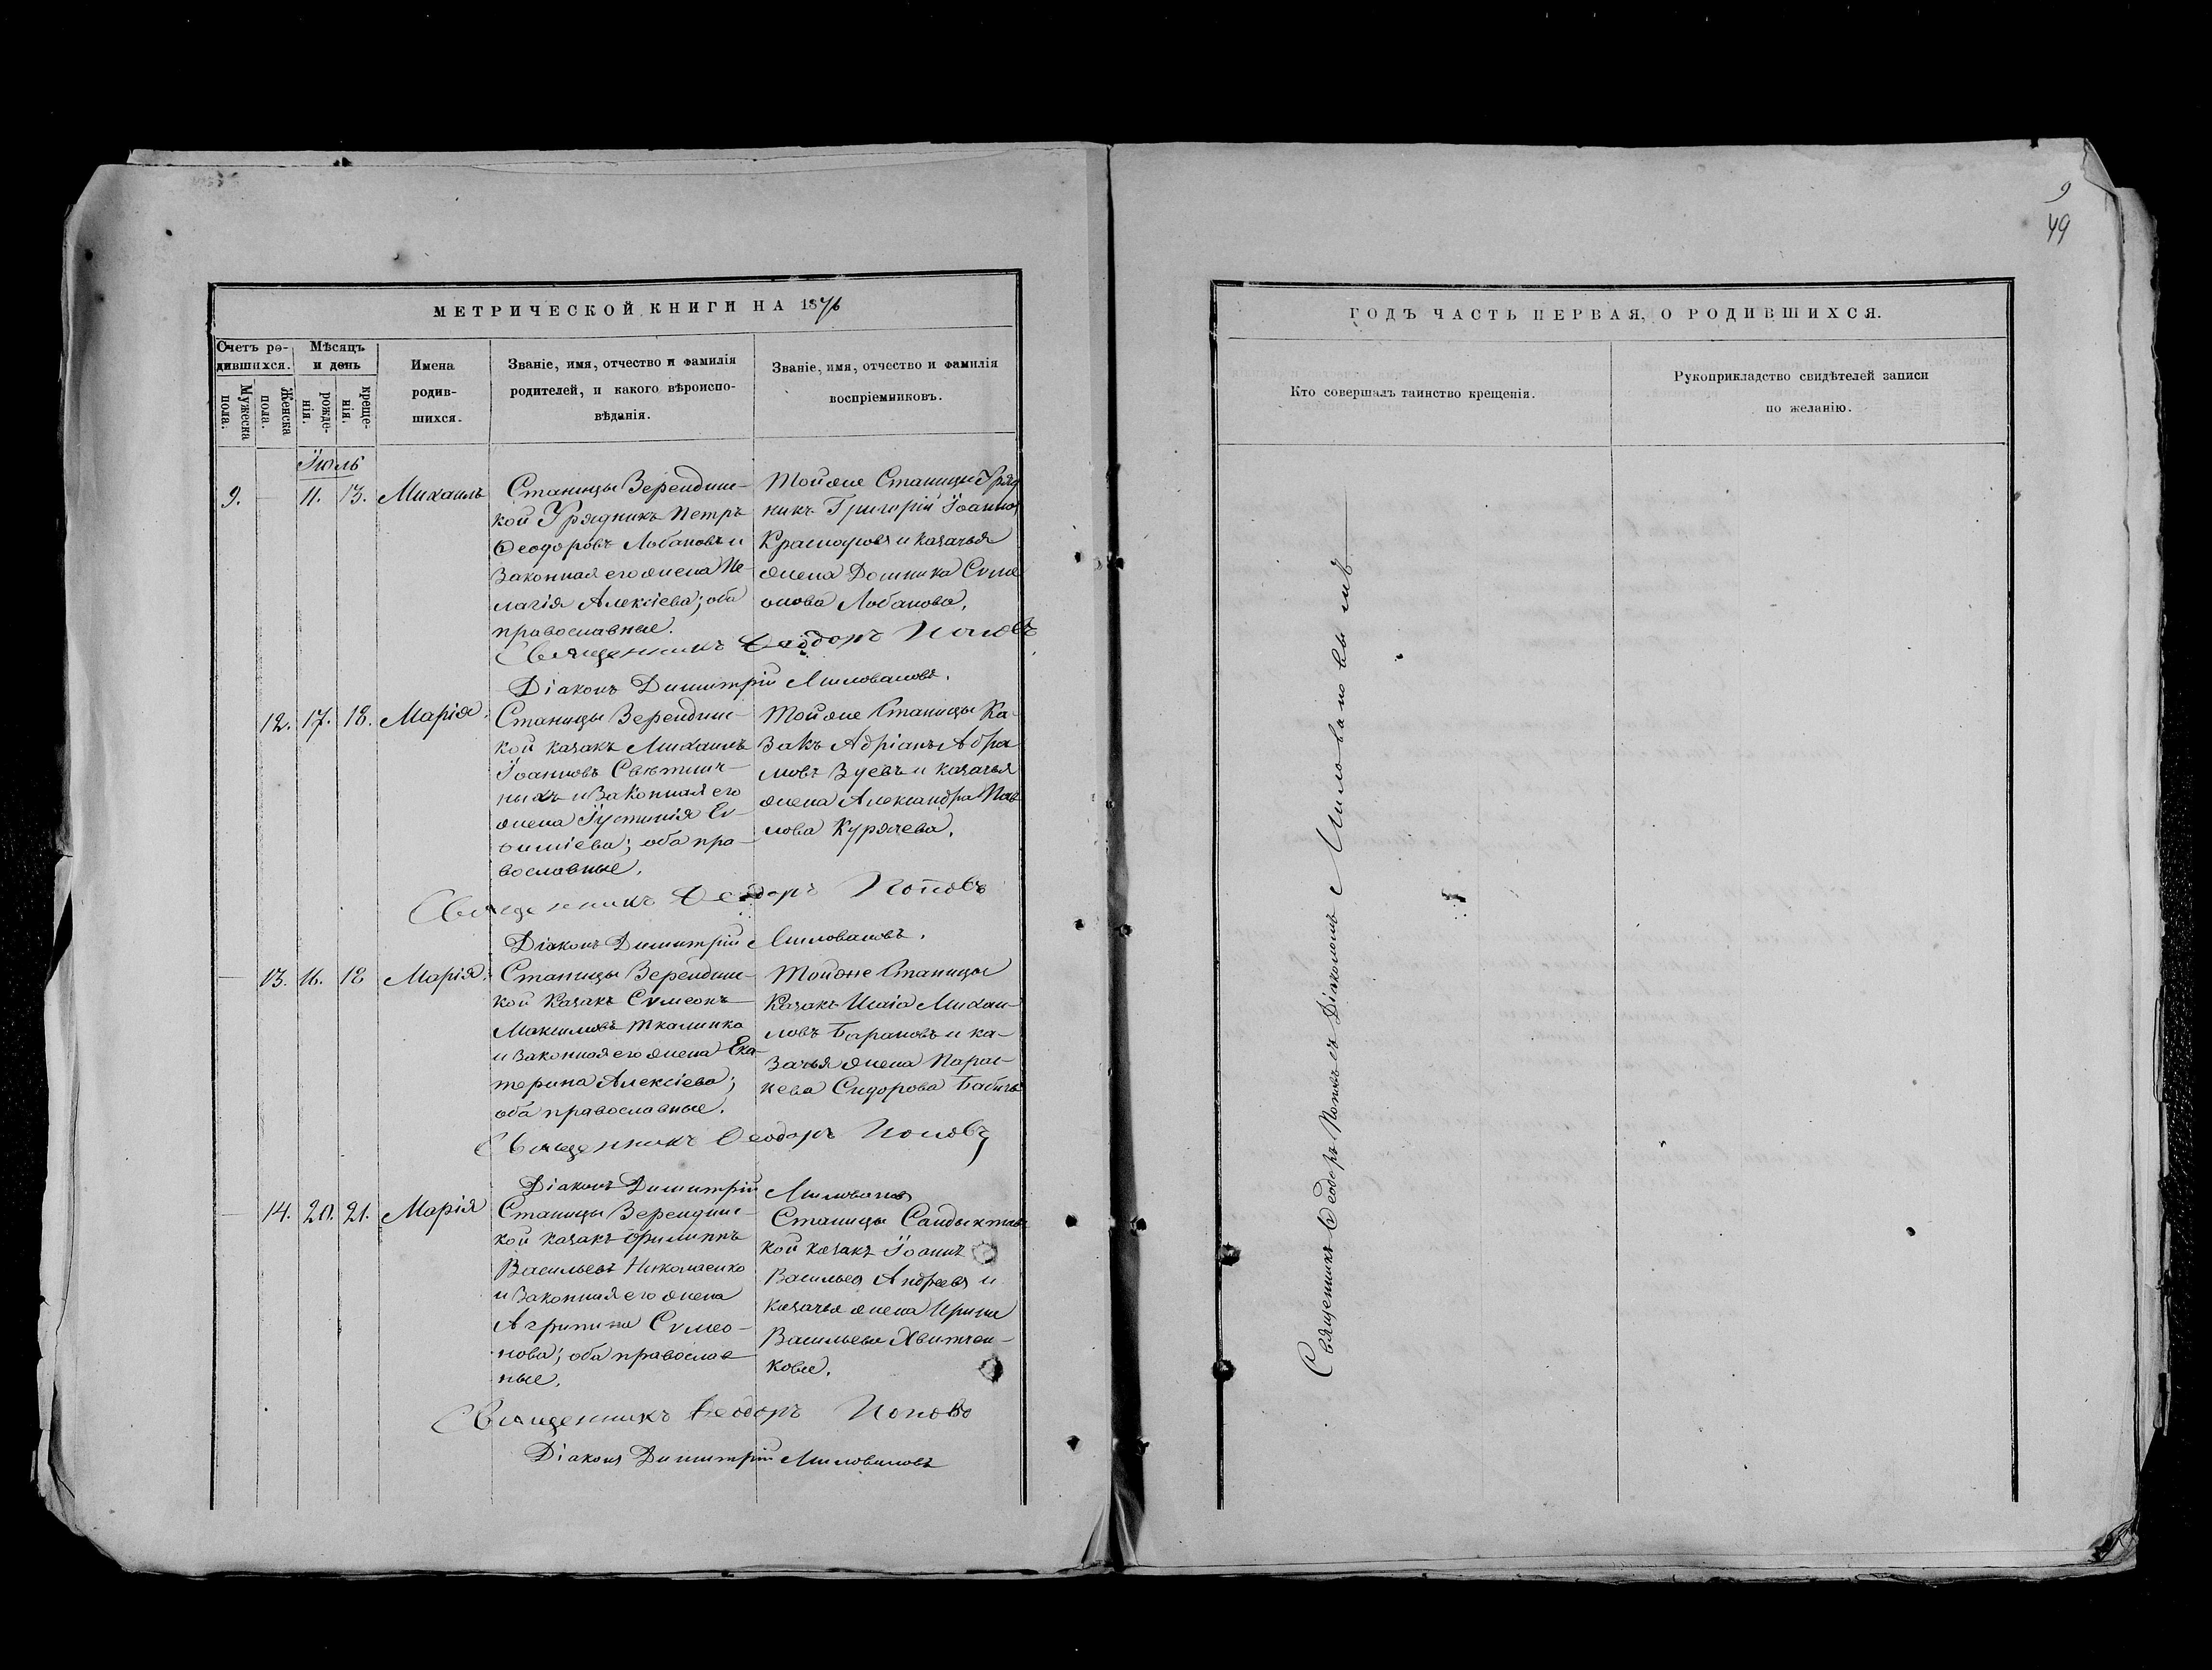 МЕТРИЧЕСКОЙ КНИГИ НА 1876
Счетъ ро-
дившихся.
Мѣсяцъ
и день
Мужеска
пола.
Женска
пола.
рожде-
нія.
креще-
нія.
Имена
родив-
шихся.
Званіе, имя, отчество и фамилія
родителей, и какого вѣроиспо-
вѣданія.
Званіе, имя, отчество и фамилія
воспріемниковъ.
Іюль
9. 11. 13. Михаилъ
Станицы Зерендин-
кой Урядникъ Петръ
Ѳеодоровъ Лобановъ и
законная его жена Пе-
лагія Алексіева; оба
православные.
Тойже Станицы Уряд
никъ Григорій Іоаннов
и казачья
жена Домника Сѵме
онова Лобанова.
Священникъ Ѳеодоръ Поповъ
Діаконъ Димитрій Миловановъ.
12. 17. 18. Марія.
Станицы Зерендин-
кой казакъ Михаилъ
Іоанновъ
и законная его
жена Іустинія Ев-
ѳиміева; оба пра-
вославные.
Тойже Станицы Ка-
закъ Адріанъ Абра
мовъ Зуевъ и казачья
жена Александра Пав
лова Курячева.
Священникъ Ѳеодоръ Поповъ
Діаконъ Димитрій Миловановъ.
13. 16. 18 Марія.
Станицы Зерендин-
кой Казакъ Сѵмеонъ
Максимовъ Ткалинка
и законная его жена Ека-
терина Алексіева;
оба православные.
Тойже Станицы
Казакъ Исаія Михаи-
ловъ Барановъ и ка-
зачья жена Парас-
кева Сидорова Бабичь
Священникъ Ѳеодоръ Поповъ
Діаконъ Димитрій Миловановъ
14. 20. 21. Марія
Станицы Зерендин-
кой казакъ Филиппъ
Васильевъ Николаенко
и законная его жена
Агрипина Сѵмео-
нова; оба православ
ные.
Станицы Сандыктав
кой казакъ Іоаннъ
Васильевъ Андреевъ и
казачья жена Ирина
Васильева
Священникъ Ѳеодоръ Поповъ
Діаконъ Димитрій Миловановъ
9
49
ГОДЪ ЧАСТЬ ПЕРВАЯ, О РОДИВШИХСЯ.
Кто совершалъ таинство крещенія.
Рукоприкладство свидѣтелей записи
по желанію.
Священникъ Ѳеодоръ Поповъ съ Діакономъ Миловановымъ